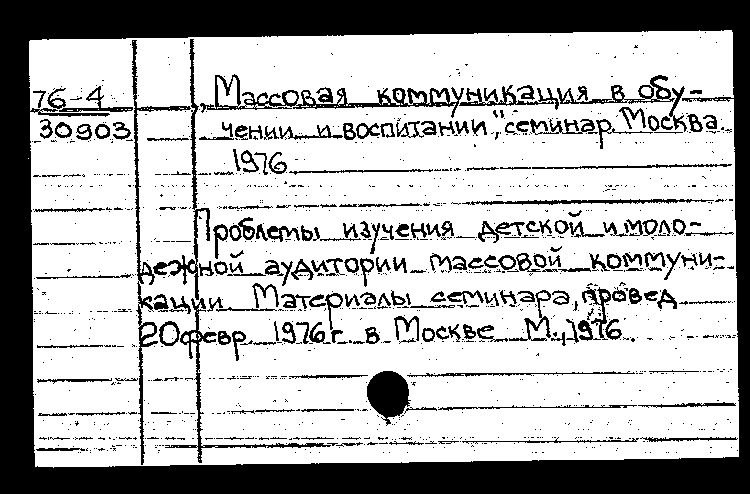 76-4
30903
„Массовая коммуникация в обу-
чении и воспитании", семинар. Москва.
1976
Проблемы изучения детской и моло-
дежной аудитории массовой коммуни-
кации. Материалы семинара, провед.
20 февр. 1976 г. в Москве. М., 1976.